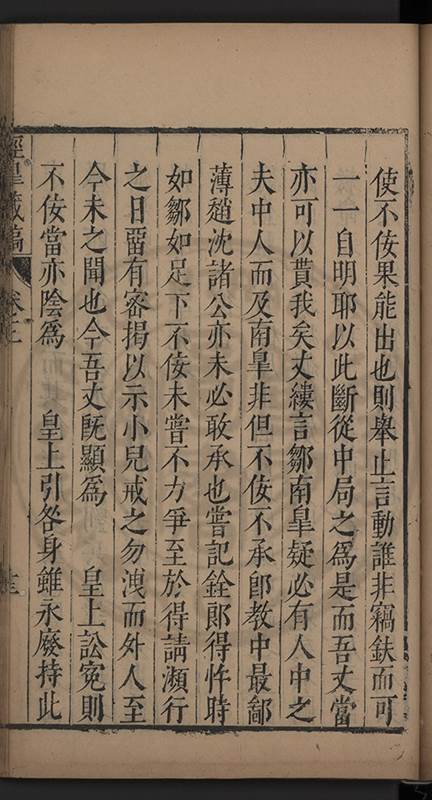 使不佞果能出也則舉止言動誰非竊鈇而可
一一自明耶以此斷從中局之爲是而吾丈當
亦可以貰我矣丈縷言鄒南臯疑必有人中之
夫中人而及南臯非但不佞不承卽教中最鄙
薄趙沈諸公亦未必敢承也嘗記銓郞得忤時
如鄒如足下不佞未嘗不力爭至於得請瀕行
之日畱有密揭以示小兒戒之勿洩而外人至
今未之聞也今吾丈旣顯爲 皇上訟寃則
不佞當亦陰爲 皇上引咎身雖永廢持此
經臯藏稿 卷